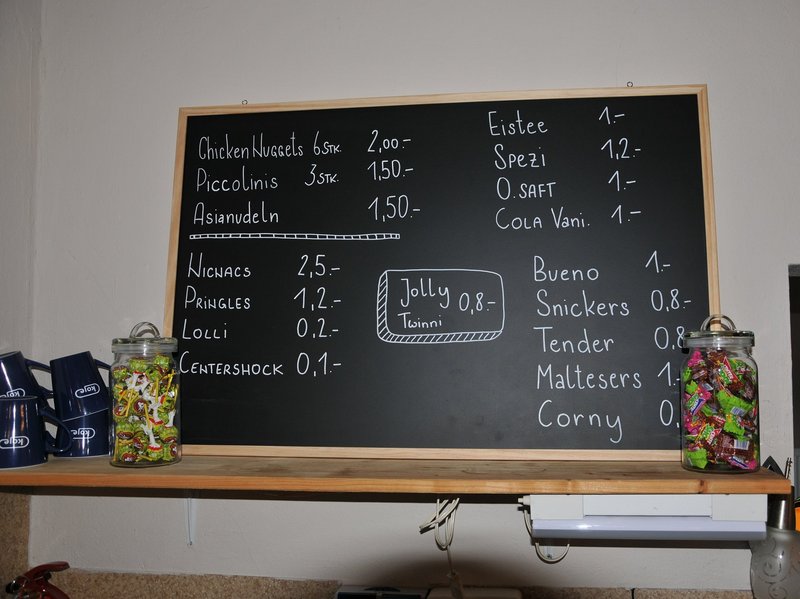 Chicken Nuggets 6 STK. 2,00.-
Piccolinis 3 STK. 1,50.-
Asianudeln 1,50.-
Nicnacs 2,5.-
Pringles 1,2.-
Lolli 0,2.-
Centershock 0,1.-
Jolly 0,8.-
Twinni
Eistee 1.-
Spezi 1,2.-
O.Saft 1.-
Cola Vani. 1.-
Bueno 1.-
Snickers 0,8.-
Tender 0,8
Maltesers 1.-
Corny 0,
koje
koje
koje